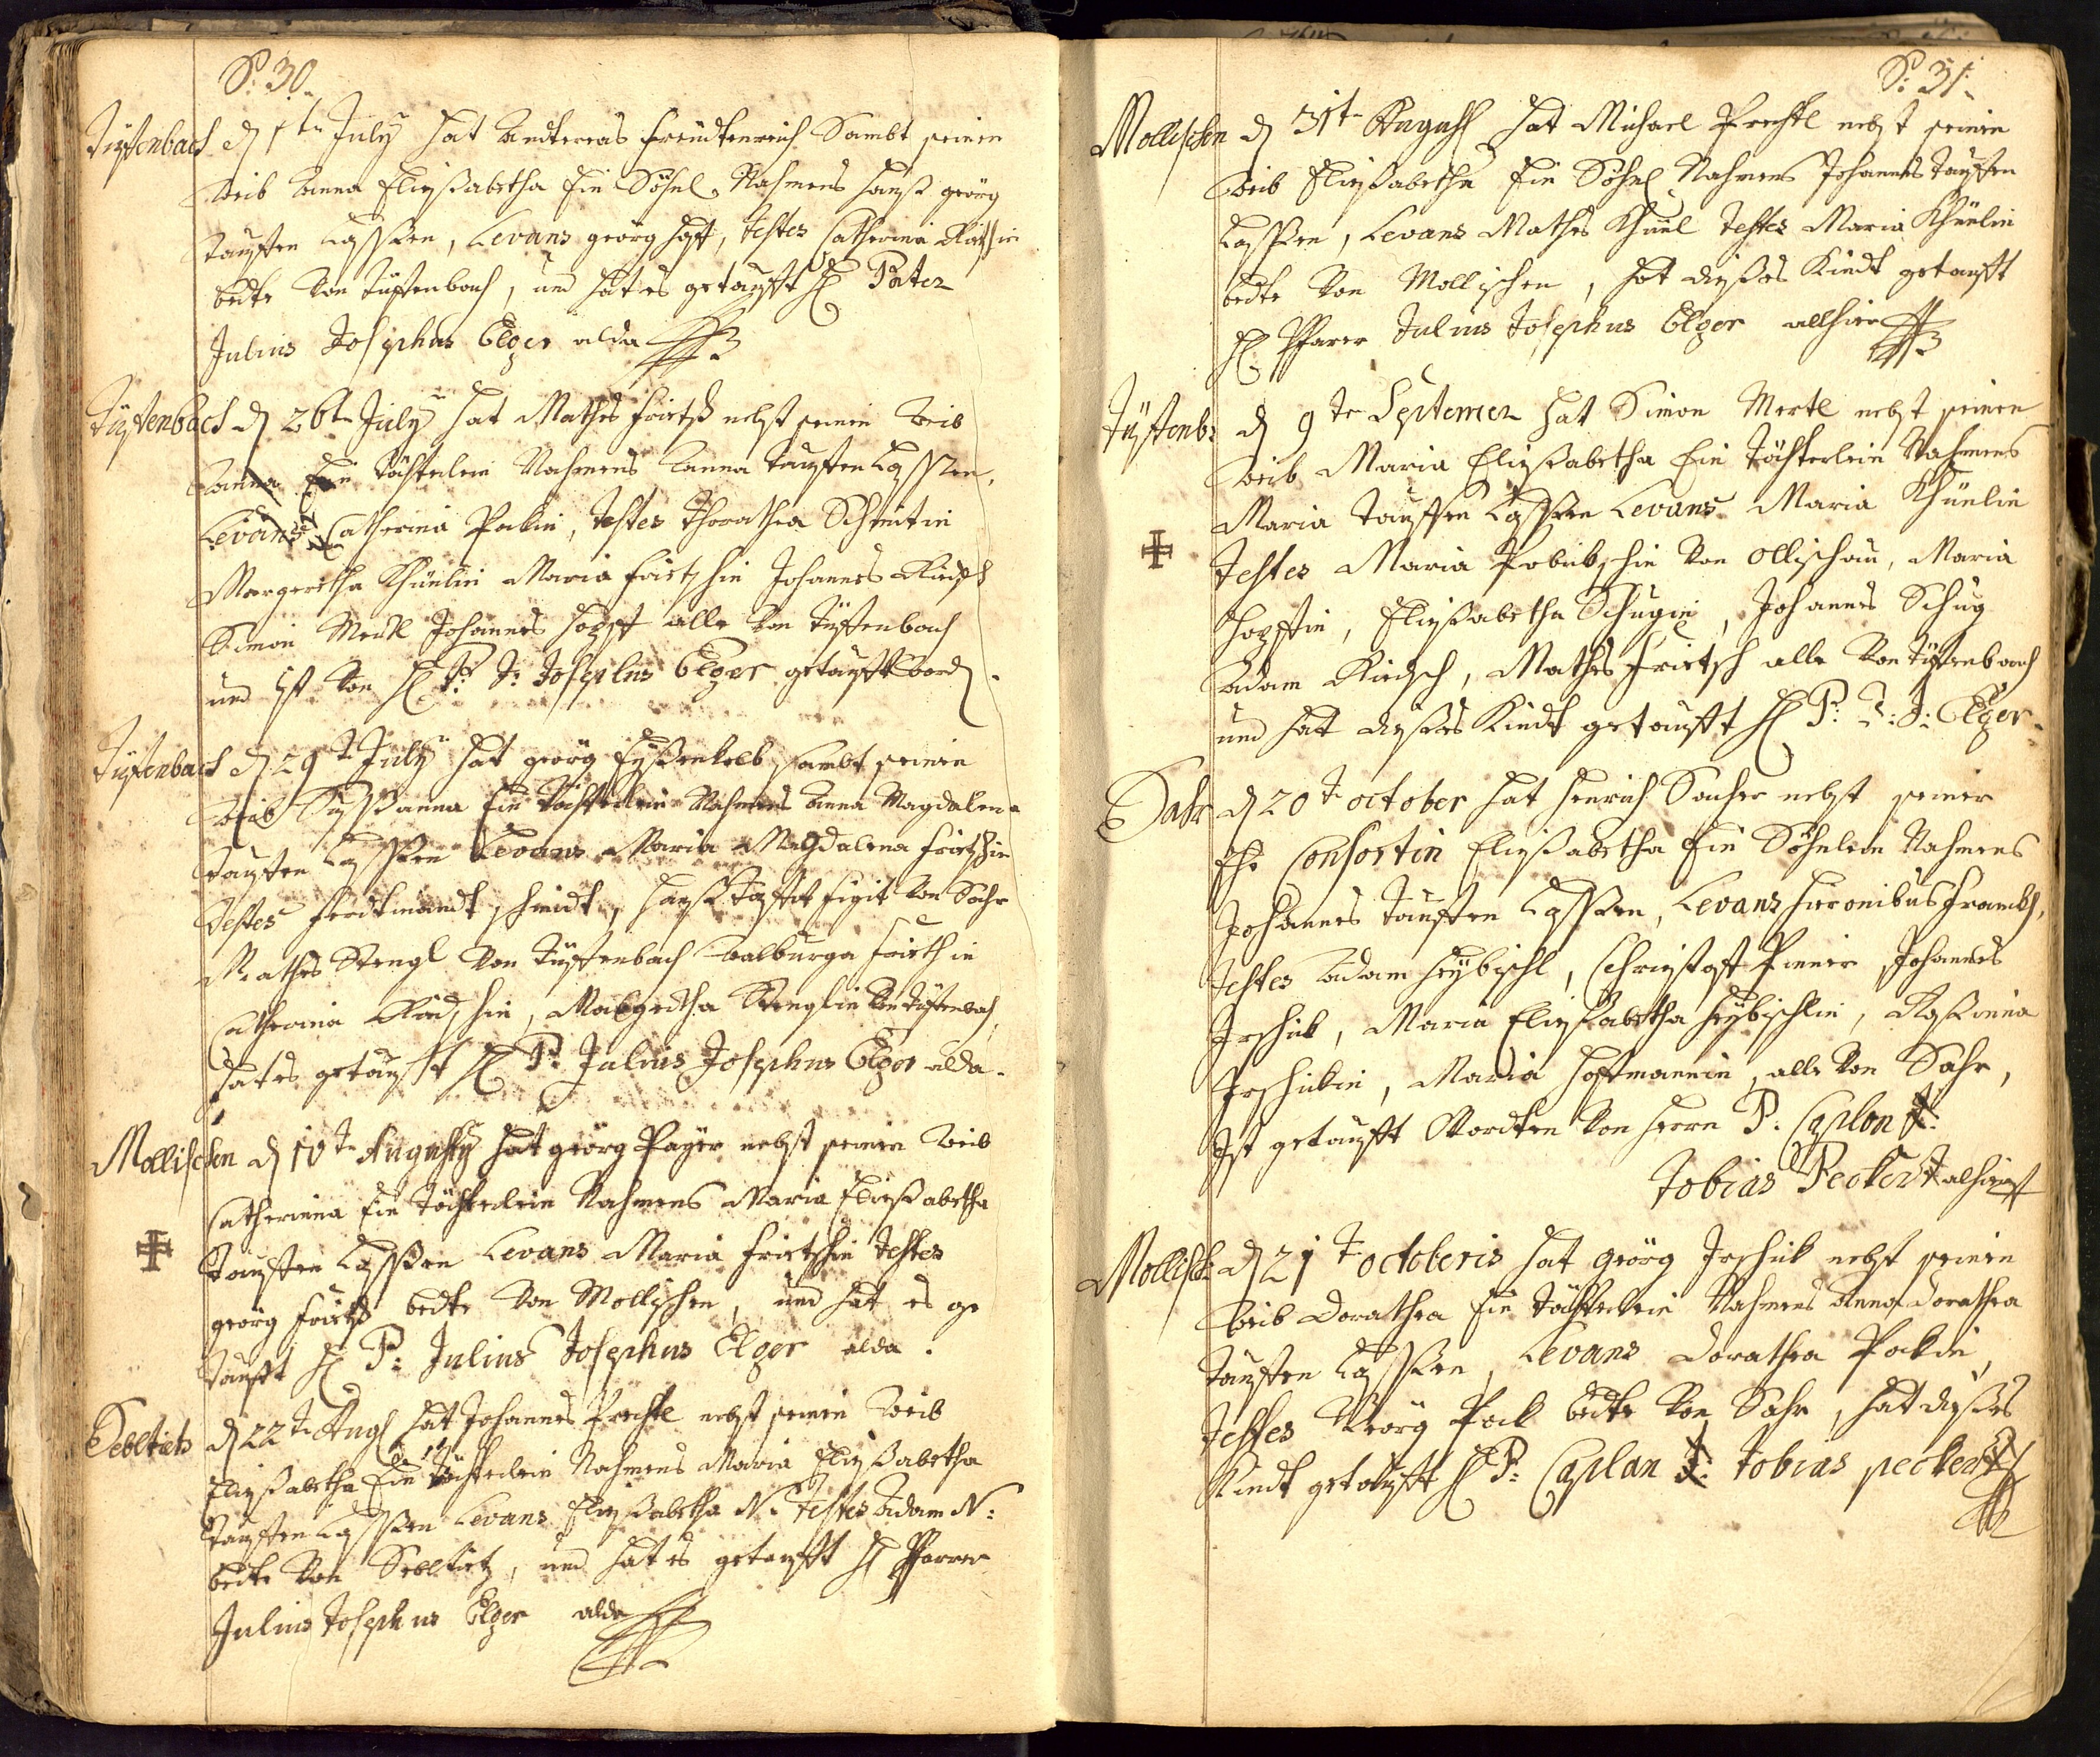 S: 30.
Tüffenbach d 1ten July hat Andtereas Freudtenreich Sambt seinen
Weib Anna Elisßabetha Ein Söhnl. Nahmens Hanß georg
tauffen Lassßen, Levans georg Hopff, testes Catherina
bedte Von Tüffenbach, und hat es getaufft H Pater
Julius Josephus Elger alda
Tüffenbach d 26ten July hat Mathes Frietsch nebst seinen Weib
Anna Ein töchterlein Nahmens Anna tauffen Lassßen,
Levans Catherina Pokin, testes Thorathea Schmitin
Margeretha Khünlin Maria Frietschin Johannes Riedsch
Simon Mertl Johannes Hopff alle Von Tüffenbach
und ist Von H P: J: Josephus Elger getaufft Word.
Tüffenbach d 29t July hat georg Eyßenkolb sambt seinen
Weib Sußßanna Ein töchterlein Nahmens Anna Magdalena
tauffen Lassßen Levans Maria Magdalena Frietschin
testes Ferdtinandt schmidt, Hanß Von Sahr
Mathes Stengl Von Tüffenbach Walburga Frietschin
Catherina Riedschin, Margretha Stenglin Von Tüffenbach,
hat es getaufft H P: Julius Josephus Elger alda.
Mollischen d 10te Augusty hat georg Payer nebst seinen Weib
Catherina Ein töchterlein Nahmens Maria Elisßabetha
tauffen Lassßen Levans Maria Frietschin testes
georg Frietsch bedte Von Mollischen, und hat es ge
taufft H P: Julius Josephus Elger alda.
Sebltietz d 22te Aug hat Johannes Prechtl nebst seinen Weib
Elisßabetha Ein töchterlein Nahmens Maria Elisßabetha
tauffen Lassßen Levans Elisßabetha N: testes Adam N:
bedte Von Sebltietz, und hat es getaufft H Pfarrer
Julius Josephus Elger alda
S: 31.
Mollischen d 31te August hat Michael Prechtl nebst seinen
Weib Elisßabetha Ein Söhnl Nahmens Johannes tauffen
Lassßen, Levans Mathes Khünl testes Maria Khünlin
bedte Von Mollischen, hat disßes Kindt getaufft
H Pfarer Julius Josephus Elger allhier
Tüffenb: d 9te Septemer hat Simon Mertl nebst seinen
Weib Maria Elisßabetha Ein töchterlein Nahmens
Maria tauffen Lassßen Levans Maria Khünlin
testes Maria Von Ollischau, Maria
Hopffin, Elisßabetha Schugin, Johannes Schug
Adam Riedsch, Mathes Frietsch alle Von Tüffenbach
und hat disßes Kindt getaufft H P: J: J: Elger.
Sahr d 20t october hat Henrich Sacher nebst seiner
Ehe Consortin Elisßabetha Ein Söhnlein Nahmens
Johannes tauffen Lassßen, Levans Hieronibus Franckh,
testes Adam Heybischl, Christoff Johannes
Jrschik, Maria Elisßabetha Heybischlin, Rosßinna
Jrschickin, Maria Hoffmannin, alle Von Sahr,
Ist getaufft Wordten Von Herrn P. Caplon
Tobias Peckert alhier
Mollisch: d 21t octoberis hat georg Jrschik nebst seinen
Weib Dorathea Ein töchterlein Nahmens Anna Dorathea
tauffen Lassßen, Levans Dorathea Pokin,
testes Georg Pok bedte Von Sahr, hat disßes
Kindt getaufft H P: Caplan Tobias peckert